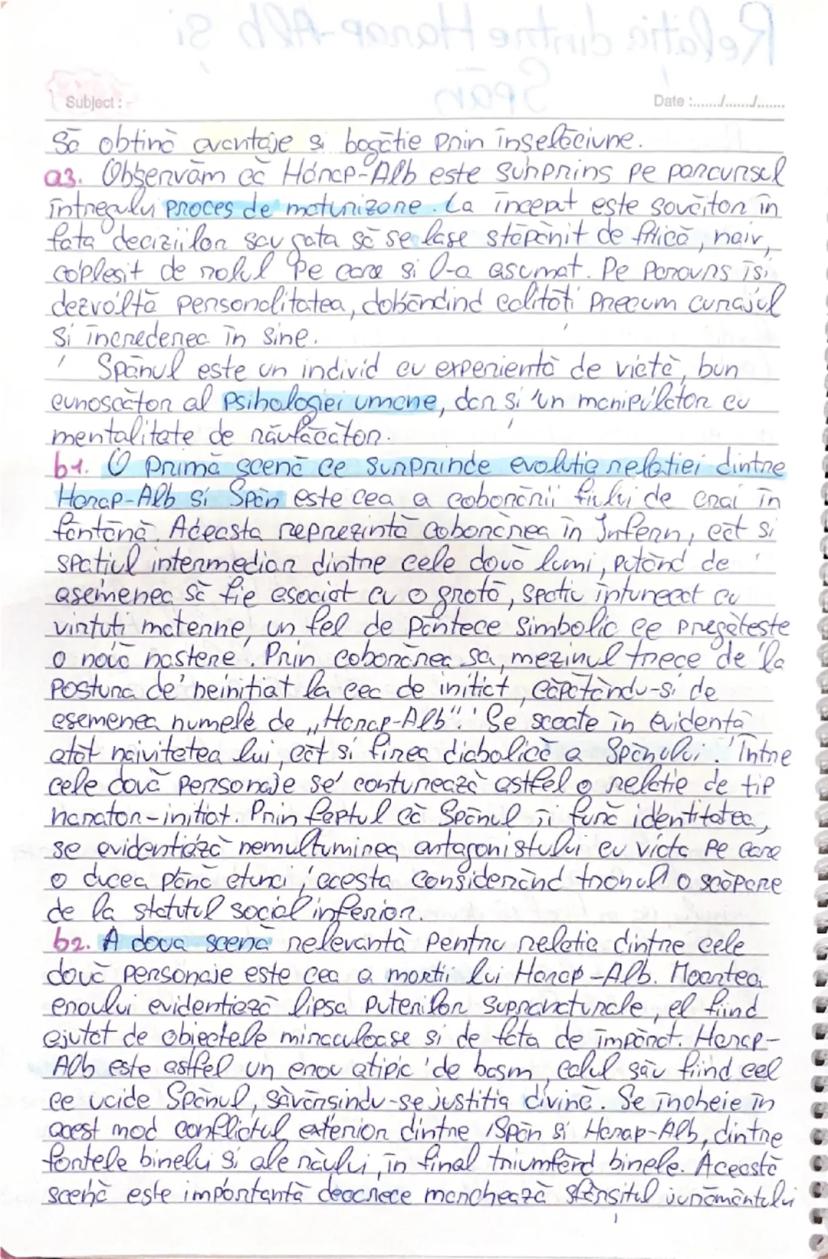 Relația dintre Harap-Alb și
Spân
Subject :
Date :....../....../......
Să obțină avantaje și bogăție prin înșelăciune.
a3. Observăm că Harap-Alb este surprins pe parcursul
întregului proces de maturizare. La început este șovăitor în
fața deciziilor sau gata să se lase stăpânit de frică, naiv,
copleșit de rolul pe care și l-a asumat. Pe parcurs își
dezvoltă personalitatea, dobândind calități precum curajul
și încrederea în sine.
Spânul este un individ cu experiență de viață, bun
cunoscător al psihologiei umane, dar și un manipulator cu
mentalitate de răufăcător.
b1. O primă scenă ce surprinde evoluția relației dintre
Harap-Alb și Spân este cea a coborârii fiului de crai în
fântână. Aceasta reprezintă coborârea în Infern, cât și
spațiul intermediar dintre cele două lumi, putând de
asemenea să fie asociat cu o grotă, spațiu întunecat cu
virtuți materne, un fel de pântece simbolic ce pregătește
o nouă naștere. Prin coborârea sa, mezinul trece de la
postura de neinițiat la cea de inițiat, căpătându-și de
asemenea numele de „Harap-Alb". Se scoate în evidență
atât naivitatea lui, cât și firea diabolică a Spânului. Între
cele două personaje se conturează astfel o relație de tip
narator-inițiat. Prin faptul că Spânul îi fură identitatea,
se evidențiază nemulțumirea antagonistului cu viața pe care
o ducea până atunci, acesta considerând tronul o scăpare
de la statutul social inferior.
b2. A doua scenă relevantă pentru relația dintre cele
două personaje este cea a morții lui Harap-Alb. Moartea
eroului evidențiază lipsa puterilor supranaturale, el fiind
ajutat de obiectele miraculoase și de fata de împărat. Harap-
Alb este astfel un erou atipic de basm, calul său fiind cel
ce ucide Spânul, săvârșindu-se justiția divină. Se încheie în
acest mod conflictul exterior dintre Spân și Harap-Alb, dintre
forțele binelui și ale răului, în final triumfând binele. Această
scenă este importantă deoarece marchează sfârșitul jurământului